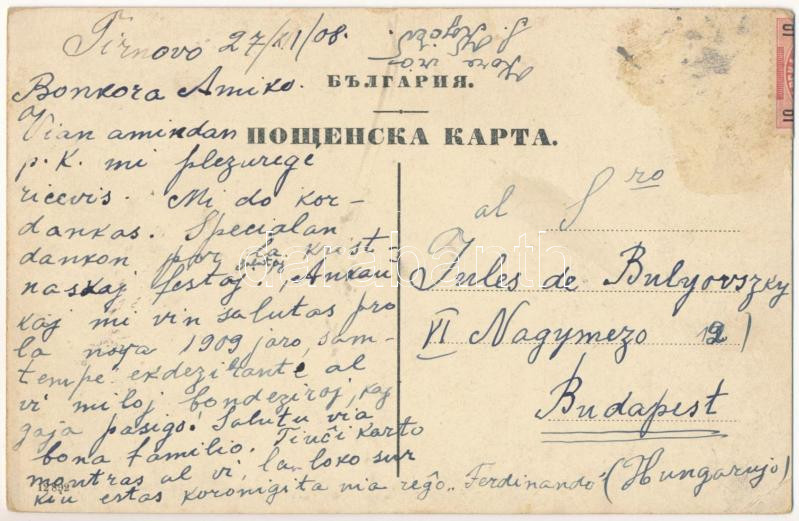 Tirnovo 27/XI/08.
БЪЛГАРИЯ.
ПОЩЕНСКА КАРТА.
Bonkora Amiko.
Vian amindan
p. K. mi plezurege
ricevis. Mi do kor-
dankas. Specialan
dankon por la krist-
naskaj festaj salutoj, Ankau
kaj mi vin salutas pro
la nova 1909 jaro, sam-
tempe ekdezirante al
vi miloj bondeziroj, kaj
gaja pasigo! Salutu via
bona familio. Tiuĉi karto
montras al vi, la loko sur
kiu estas koronigita nia reĝo "Ferdinando"
al Sro
Jules de Bulyovszky
VI Nagymezo
Budapest
(Hungarujo)
12892
darabanth
10
10